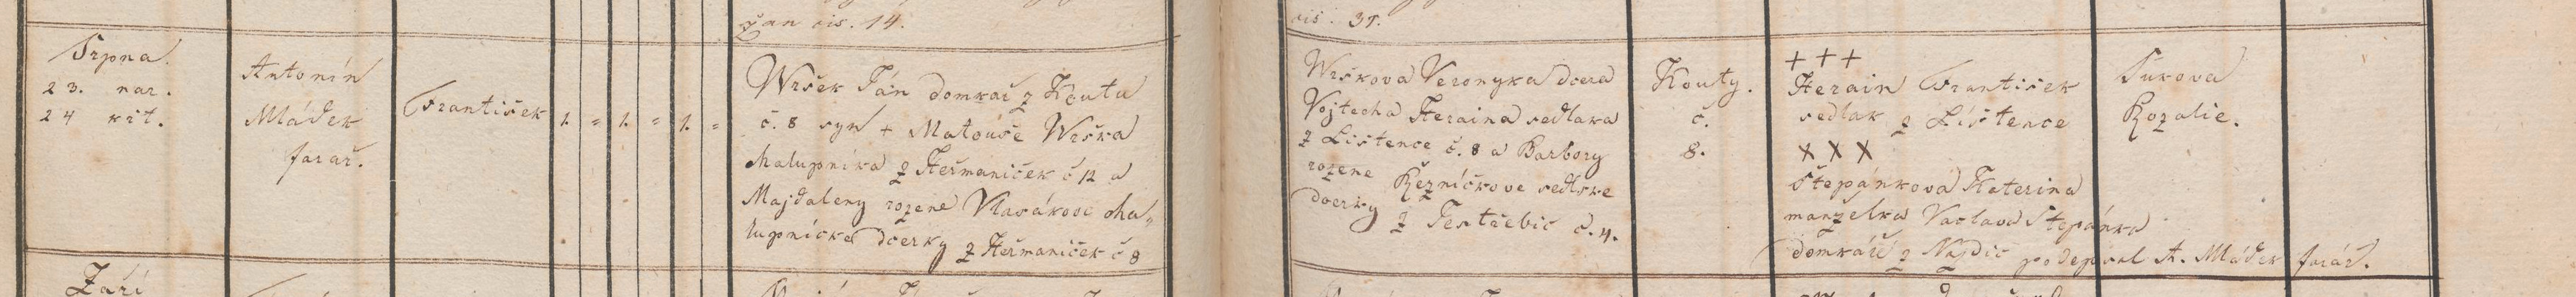 Pan cis. 14.
cis. 31.
Srpna.
23. nar.
24 krt.
Antonín
Mádek
farař.
František
1. = 1. = 1. =
Wršek Ján domkař z Koutu
č. 8 syn + Matouše Wrška
chalupníka z Heřmaniček č 12 a
Majdaleny rozené Vlasákové cha„
lupnické dcerky z Heřmaniček č 8
Wrškova Veronyka dcera
Vojtecha Heraina sedlaka
z Listence č. 8 a Barbory
rozene Řezníčkove sedlske
dcerky z Jestřebic č. 4.
Kouty.
č.
8.
+++
Herain František
sedlak z Lístence
XXX
Štepánková Katerina
manzelka Vaclava Stepánka
domkáře z Najdic podepsal A. Mádek farář.
Sukova
Rozalie.
Září